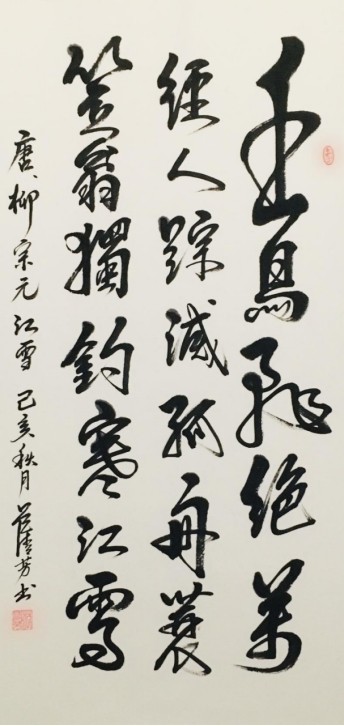 千山鳥飛絕萬
徑人踪滅孤舟蓑
笠翁獨釣寒江雪
唐、柳宗元江雪 己亥秋月 芳书